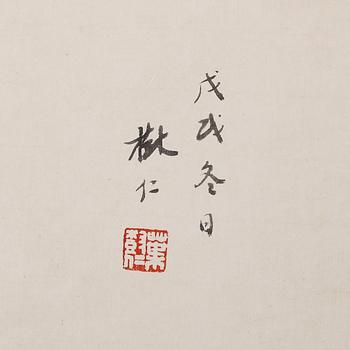 戊戌冬日
樹仁